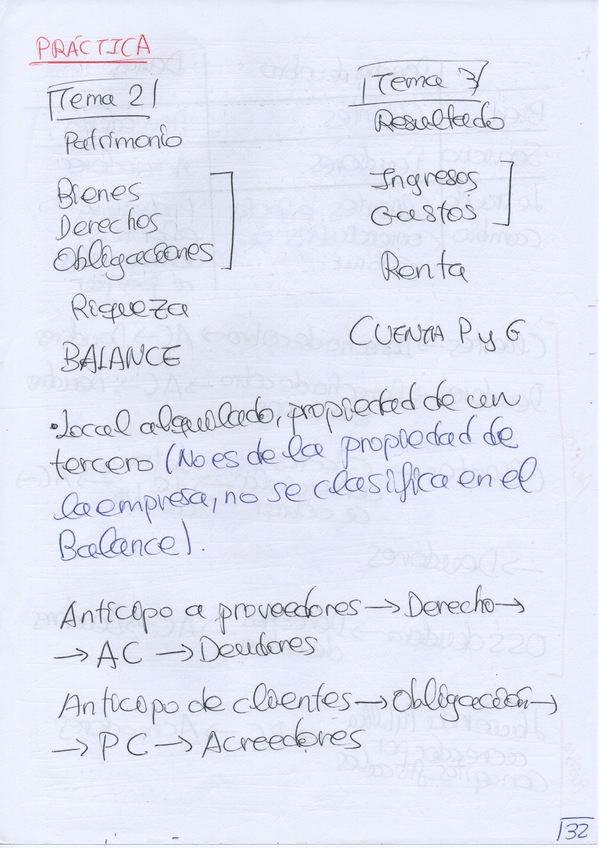 PRÁCTICA
Tema 2
Patrimonio
Bienes
Derechos
Obligaciones
Riqueza
BALANCE
Tema 3
Resultado
Ingresos
Gastos
Renta
CUENTA P y G
·Local alquilado, propiedad de un
tercero (No es de la propiedad de
la empresa, no se clasifica en el
Balance).
Anticipo a proveedores → Derecho →
→ AC → Deudores
Anticipo de clientes → Obligación →
→ PC → Acreedores
32